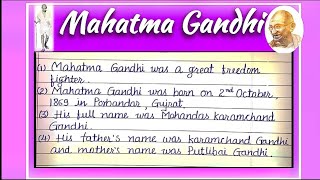 Mahatma Gandhi
(1) Mahatma Gandhi was a great freedom
fighter.
(2) Mahatma Gandhi was born on 2nd October,
1869 in Porbandar, Gujrat.
(3) His full name was Mohandas karamchand
Gandhi.
(4) His father's name was karamchand Gandhi
and mother's name was Putlibai Gandhi.